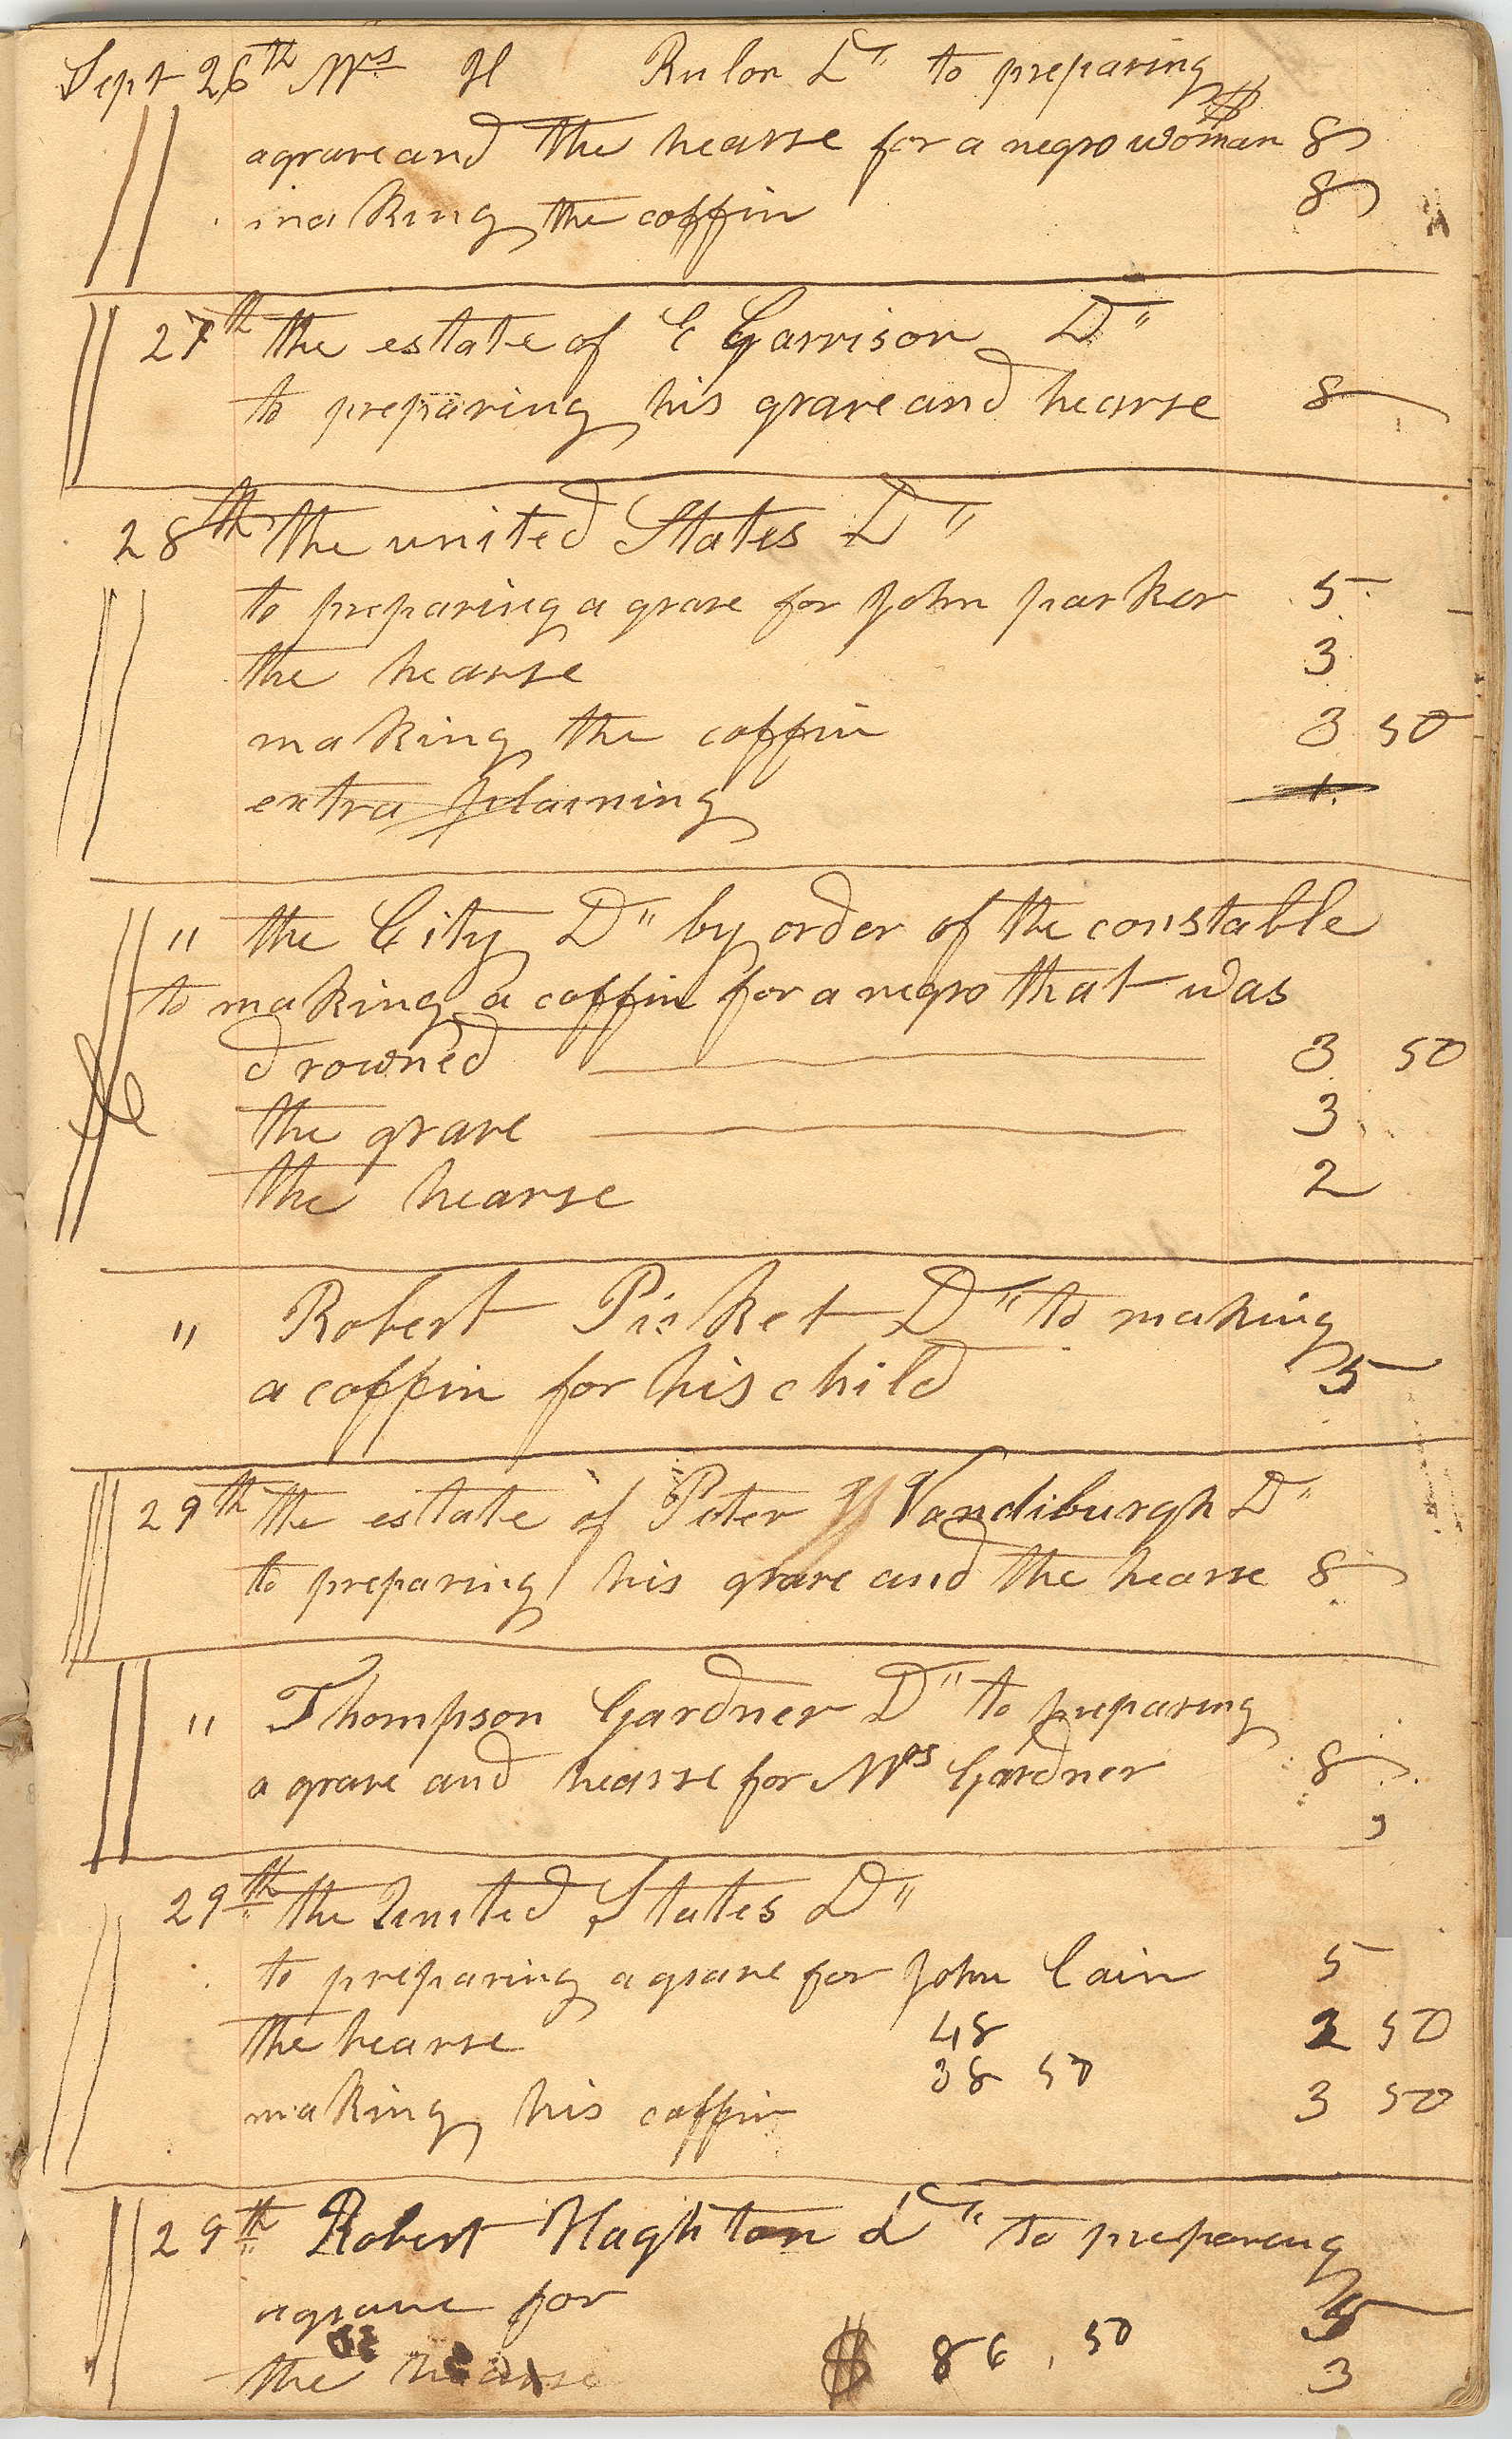 Sept 26th Mrs H Rulon Dr to preparing
$
a grave and the hearse for a negro woman 8
making the coffin 8
27th the estate of E Garrison Dr
to preparing his grave and hearse 8
28th the united States Dr
to preparing a grave for John parker 5
the hearse 3
making the coffin 3 50
extra plaining 1
" the City Dr by order of the constable
to making a coffin for a negro that was
drowned 3 50
the grave 3
the hearse 2
" Robert Picket Dr to making
a coffin for his child 5
29th the estate of Peter Vandiburgh Dr
to preparing his grave and the hearse 8
" Thompson Gardner Dr to preparing
a grave and hearse for Mrs Gardner 8
29th the United States Dr
to preparing a grave for John Cain 5
the hearse 48 2 50
38 50
making his coffin 3 50
29th Robert Haghton Dr to preparing
a grave for 5
the hearse $ 86,50 3